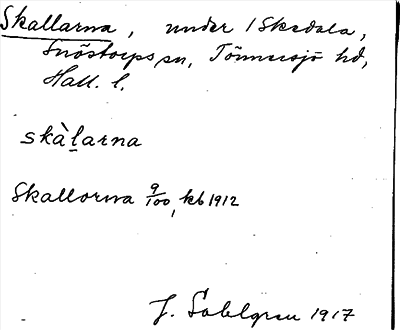 Skallarna, under 1 Skedala,
Snöstorps sn, Tönnersjö hd,
Hall. l.
skàḷarna
Skallorna 9/100, kb 1912
J. Sahlgren 1917